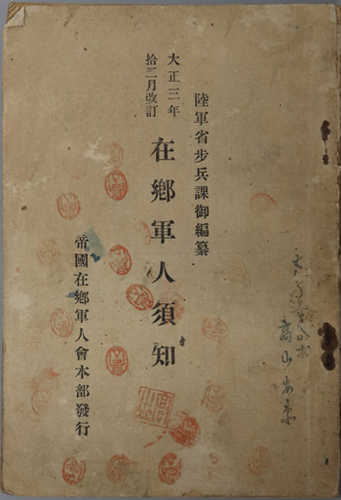 陸軍省步兵課御編纂
大正三年
拾二月改訂
在鄕軍人須知
帝國在鄕軍人會本部發行
高山